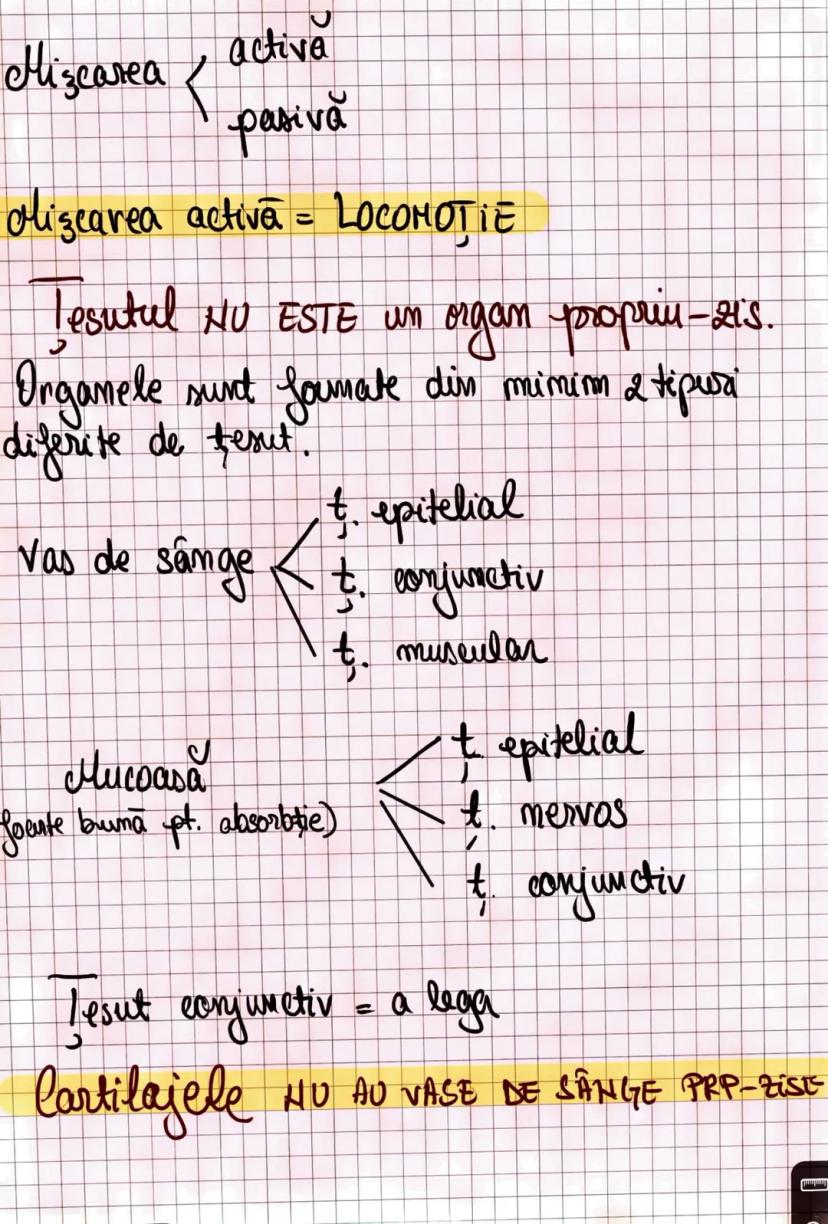 Mișcarea
activă
pasivă
Mișcarea activă = LOCOMOȚiE
Țesutul NU ESTE un organ propriu-zis.
Organele sunt formate din minim 2 tipuri
diferite de țesut.
Vas de sânge
ț. epitelial
ț. conjunctiv
ț. muscular
Mucoasă
foarte bună pt. absorbție)
ț. epitelial
ț. nervos
ț. conjunctiv
Țesut conjunctiv = a lega
Cartilajele NU AU VASE DE SÂNGE PRP-ZiSE